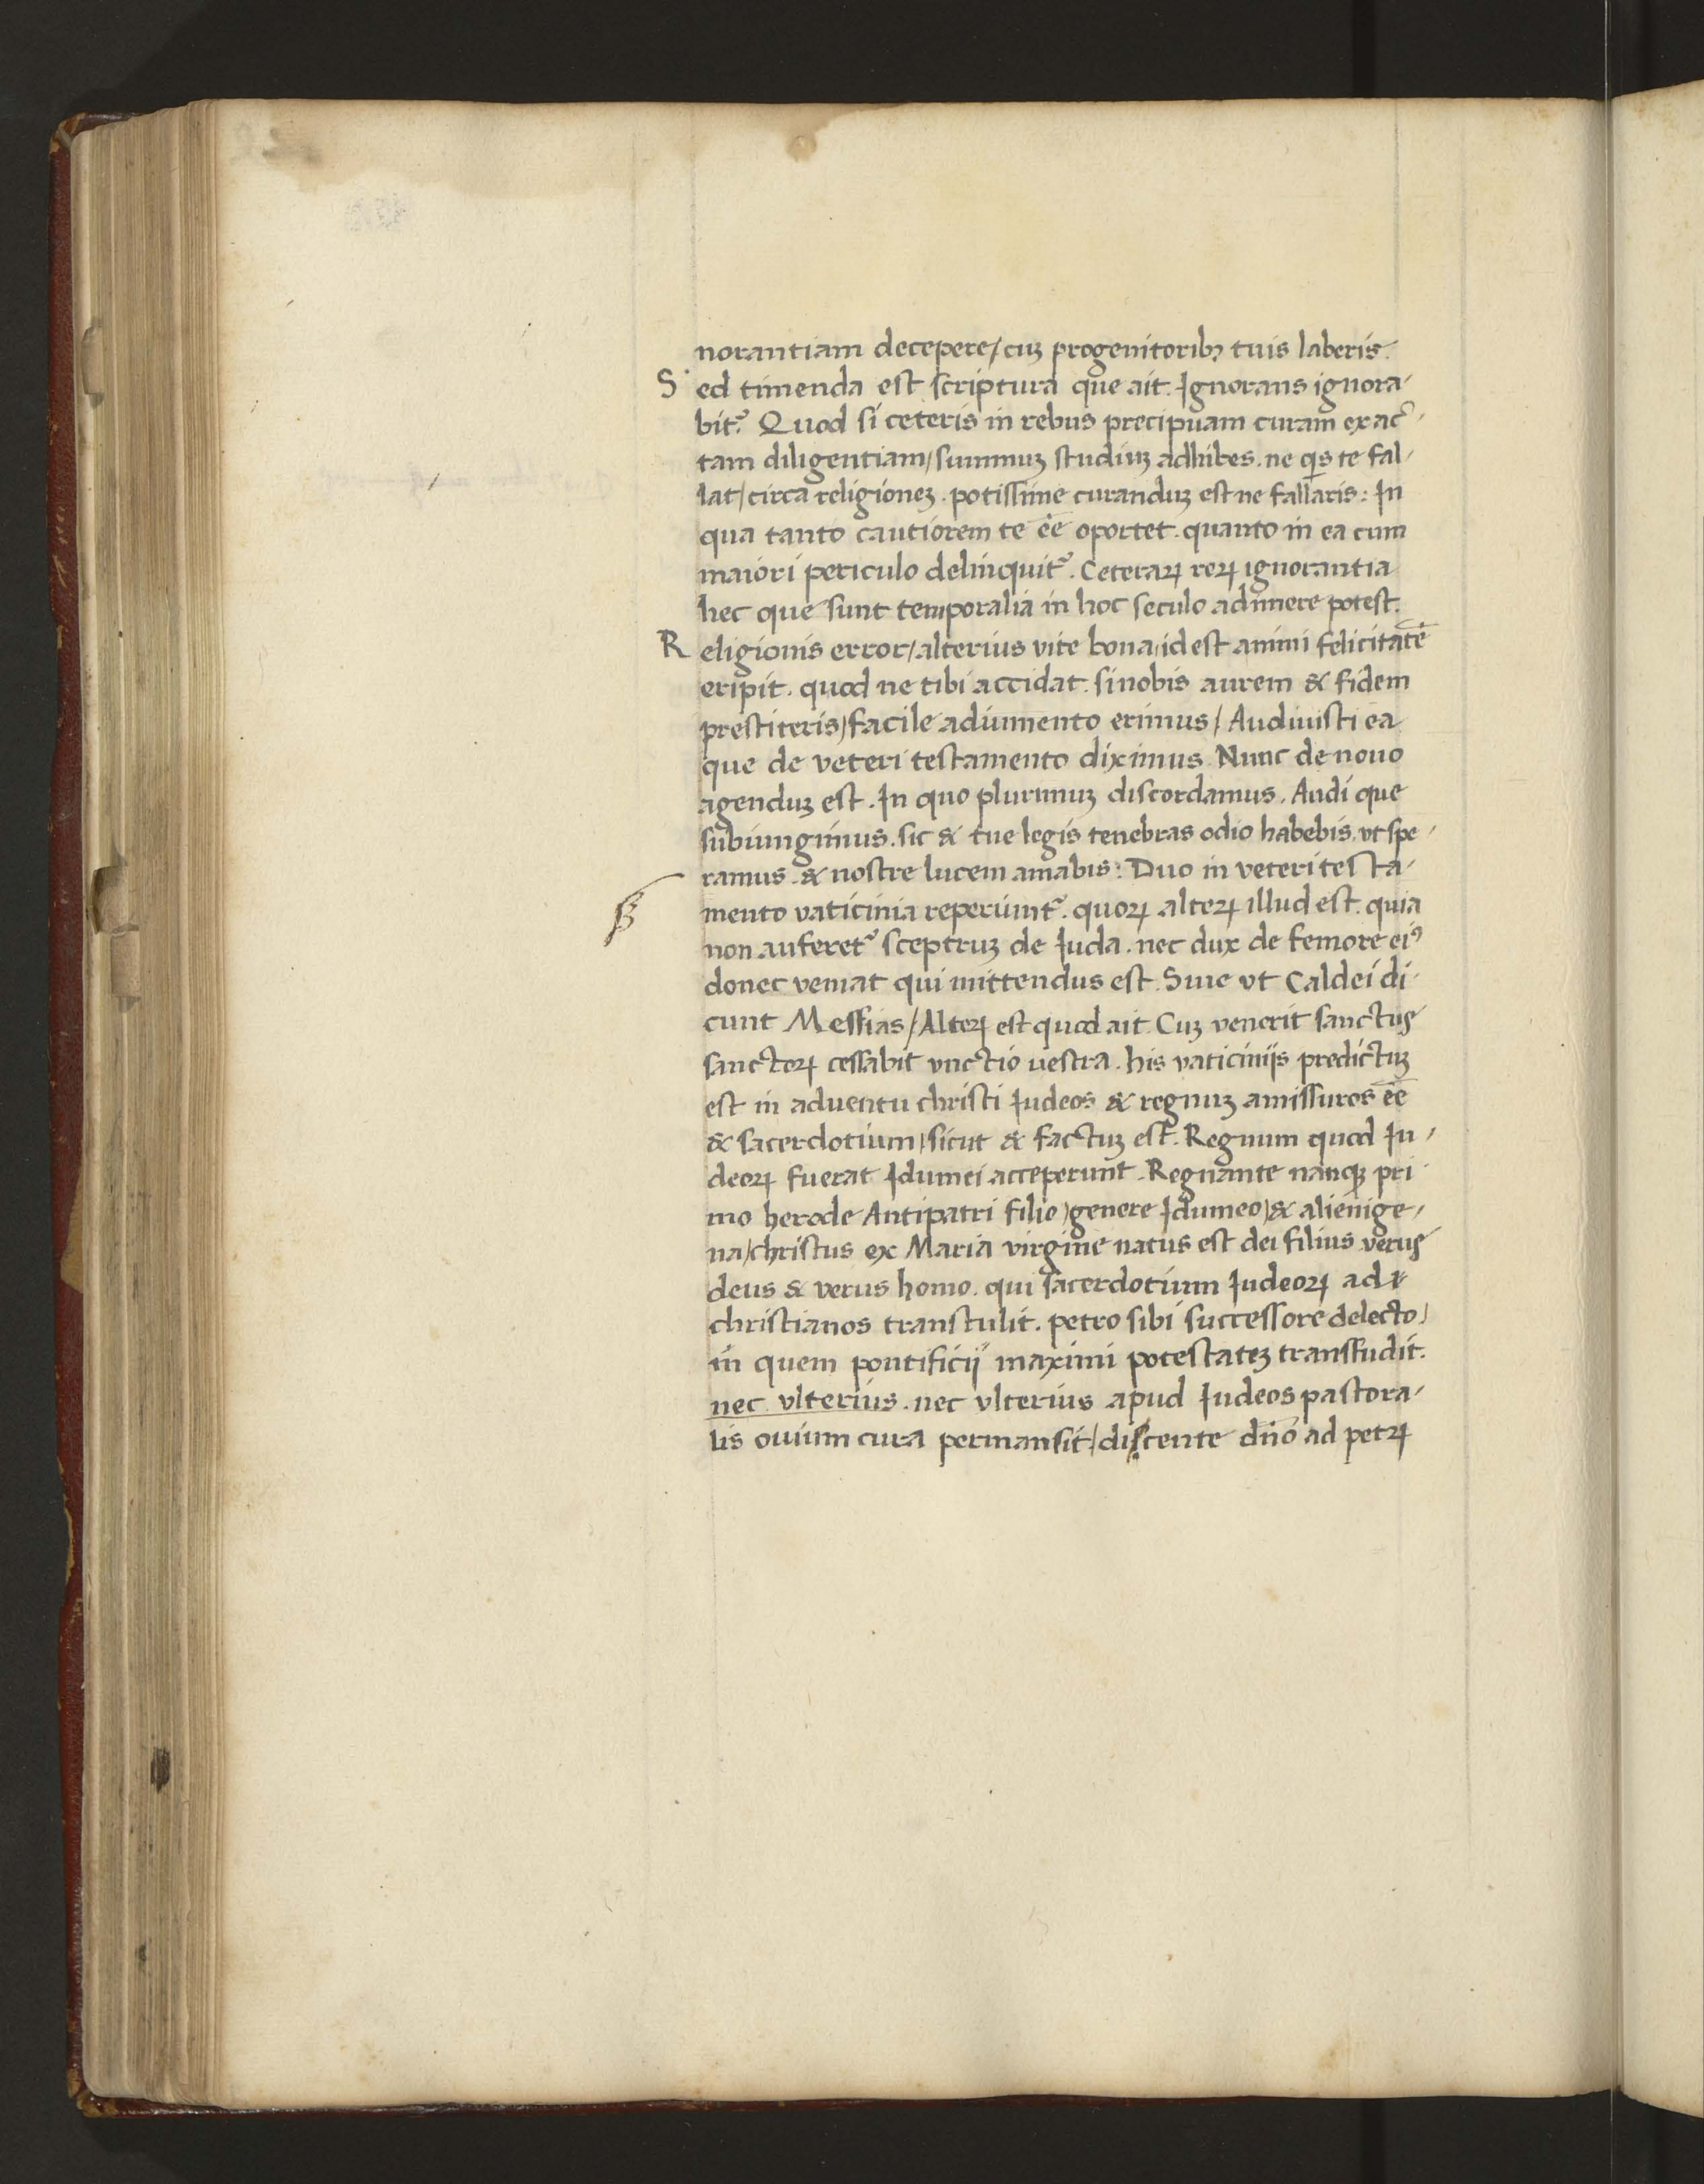 norantiam decepere / cuȝ progenitoribꝫ tuis laberis.
S ed timenda est scriptura que ait. Ignorans ignora-
bit᷑. Quod si ceteris in rebus precipuam curam exac-
tam diligentiam / summuȝ studiuȝ adhibes. ne qͥs te fal-
lat / circa religioneȝ. potissime curanduȝ est ne fallaris: In
qua tanto cautiorem te eē oportet. quanto in ea cum
maiori periculo delinquit᷑. Ceteraꝝ reꝝ ignorantia
hec que sunt temporalia in hoc seculo adimere potest.
R eligionis error / alterius vite bona / id est animi felicitatē
eripit. quod ne tibi accidat. si nobis aurem & fidem
prestiteris / facile adiumento erimus / Audiuisti ea
que de veteri testamento diximus. Nunc de nouo
agenduȝ est. In quo plurimuȝ discordamus. Audi que
subiungimus. sic & tue legis tenebras odio habebis. vt spe-
ramus. & nostre lucem amabis: Duo in veteri testa-
mento vaticinia reperiunt᷑. quoꝝ alteꝝ illud est. quia
non auferet᷑ sceptruȝ de Iuda. nec dux de femore eiꝰ
donec veniat qui mittendus est. Siue vt Caldei di-
cunt Messias / Alteꝝ est quod ait. Cuȝ venerit sanctus
sanctoꝝ cessabit vnctio vestra. his vaticiniis predictuȝ
est in aduentu christi Iudeos & regnuȝ amissuros eē
& sacerdotium / sicut & factuȝ est. Regnum quod Iu-
deoꝝ fuerat Idumei acceperunt. Regnante nanqȝ pri
mo herode Antipatri filio / genere Idumeo / & alienige-
na / christus ex Maria virgine natus est dei filius verus
deus & verus homo. qui sacerdotium Iudeoꝝ ad
christianos transtulit. petro sibi successore delecto /
in quem pontificii maximi potestateȝ transfudit.
nec vlterius. nec vlterius apud Iudeos pastora-
lis ouium cura permansit. / discente dn̄o ad petꝝ